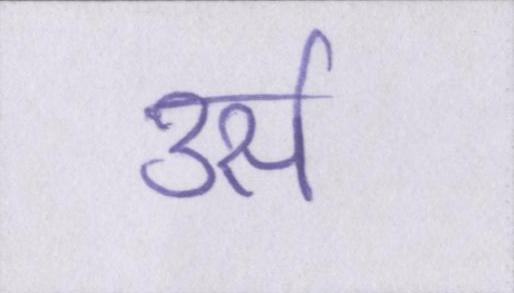 उर्स